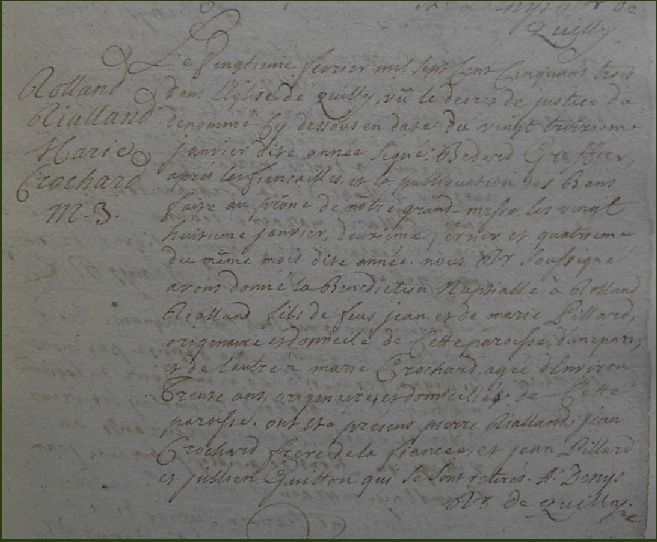 Quilly.
Rolland
Rialland
Marie
Crochard
M. 3.
Le Vingtiéme fevrier mil sept Cent Cinquant trois
dans L'Eglise de Quilly, vû le decret de justice du
denommé Cy dessous en date du vingt troizieme
janvier dite année signé: Bedard Greffier,
aprés les fiençailles et la publication des Bans
faite au prône de nôtre grand-messe, les vingt
huitieme janvier, deuxieme fevrier et quatrieme
du même mois dite année. nous Pr. Soussigné
avons donné la Benediction Nuptialle à Rolland
Rialland fils de feus jean et de marie Pillard,
originaire et domicilié de Cette paroisse, d'une part,
et de l'autre à marie Crochard, agée d'Environ
Trente ans, originaire et domiciliée de Cette
paroisse. ont eté presens pierre Rialland, jean
Crochard frere de la fiancée, et jean Pillard
et jullien Guitton qui se sont retirés. A. Denys
Pr. de Quilly.